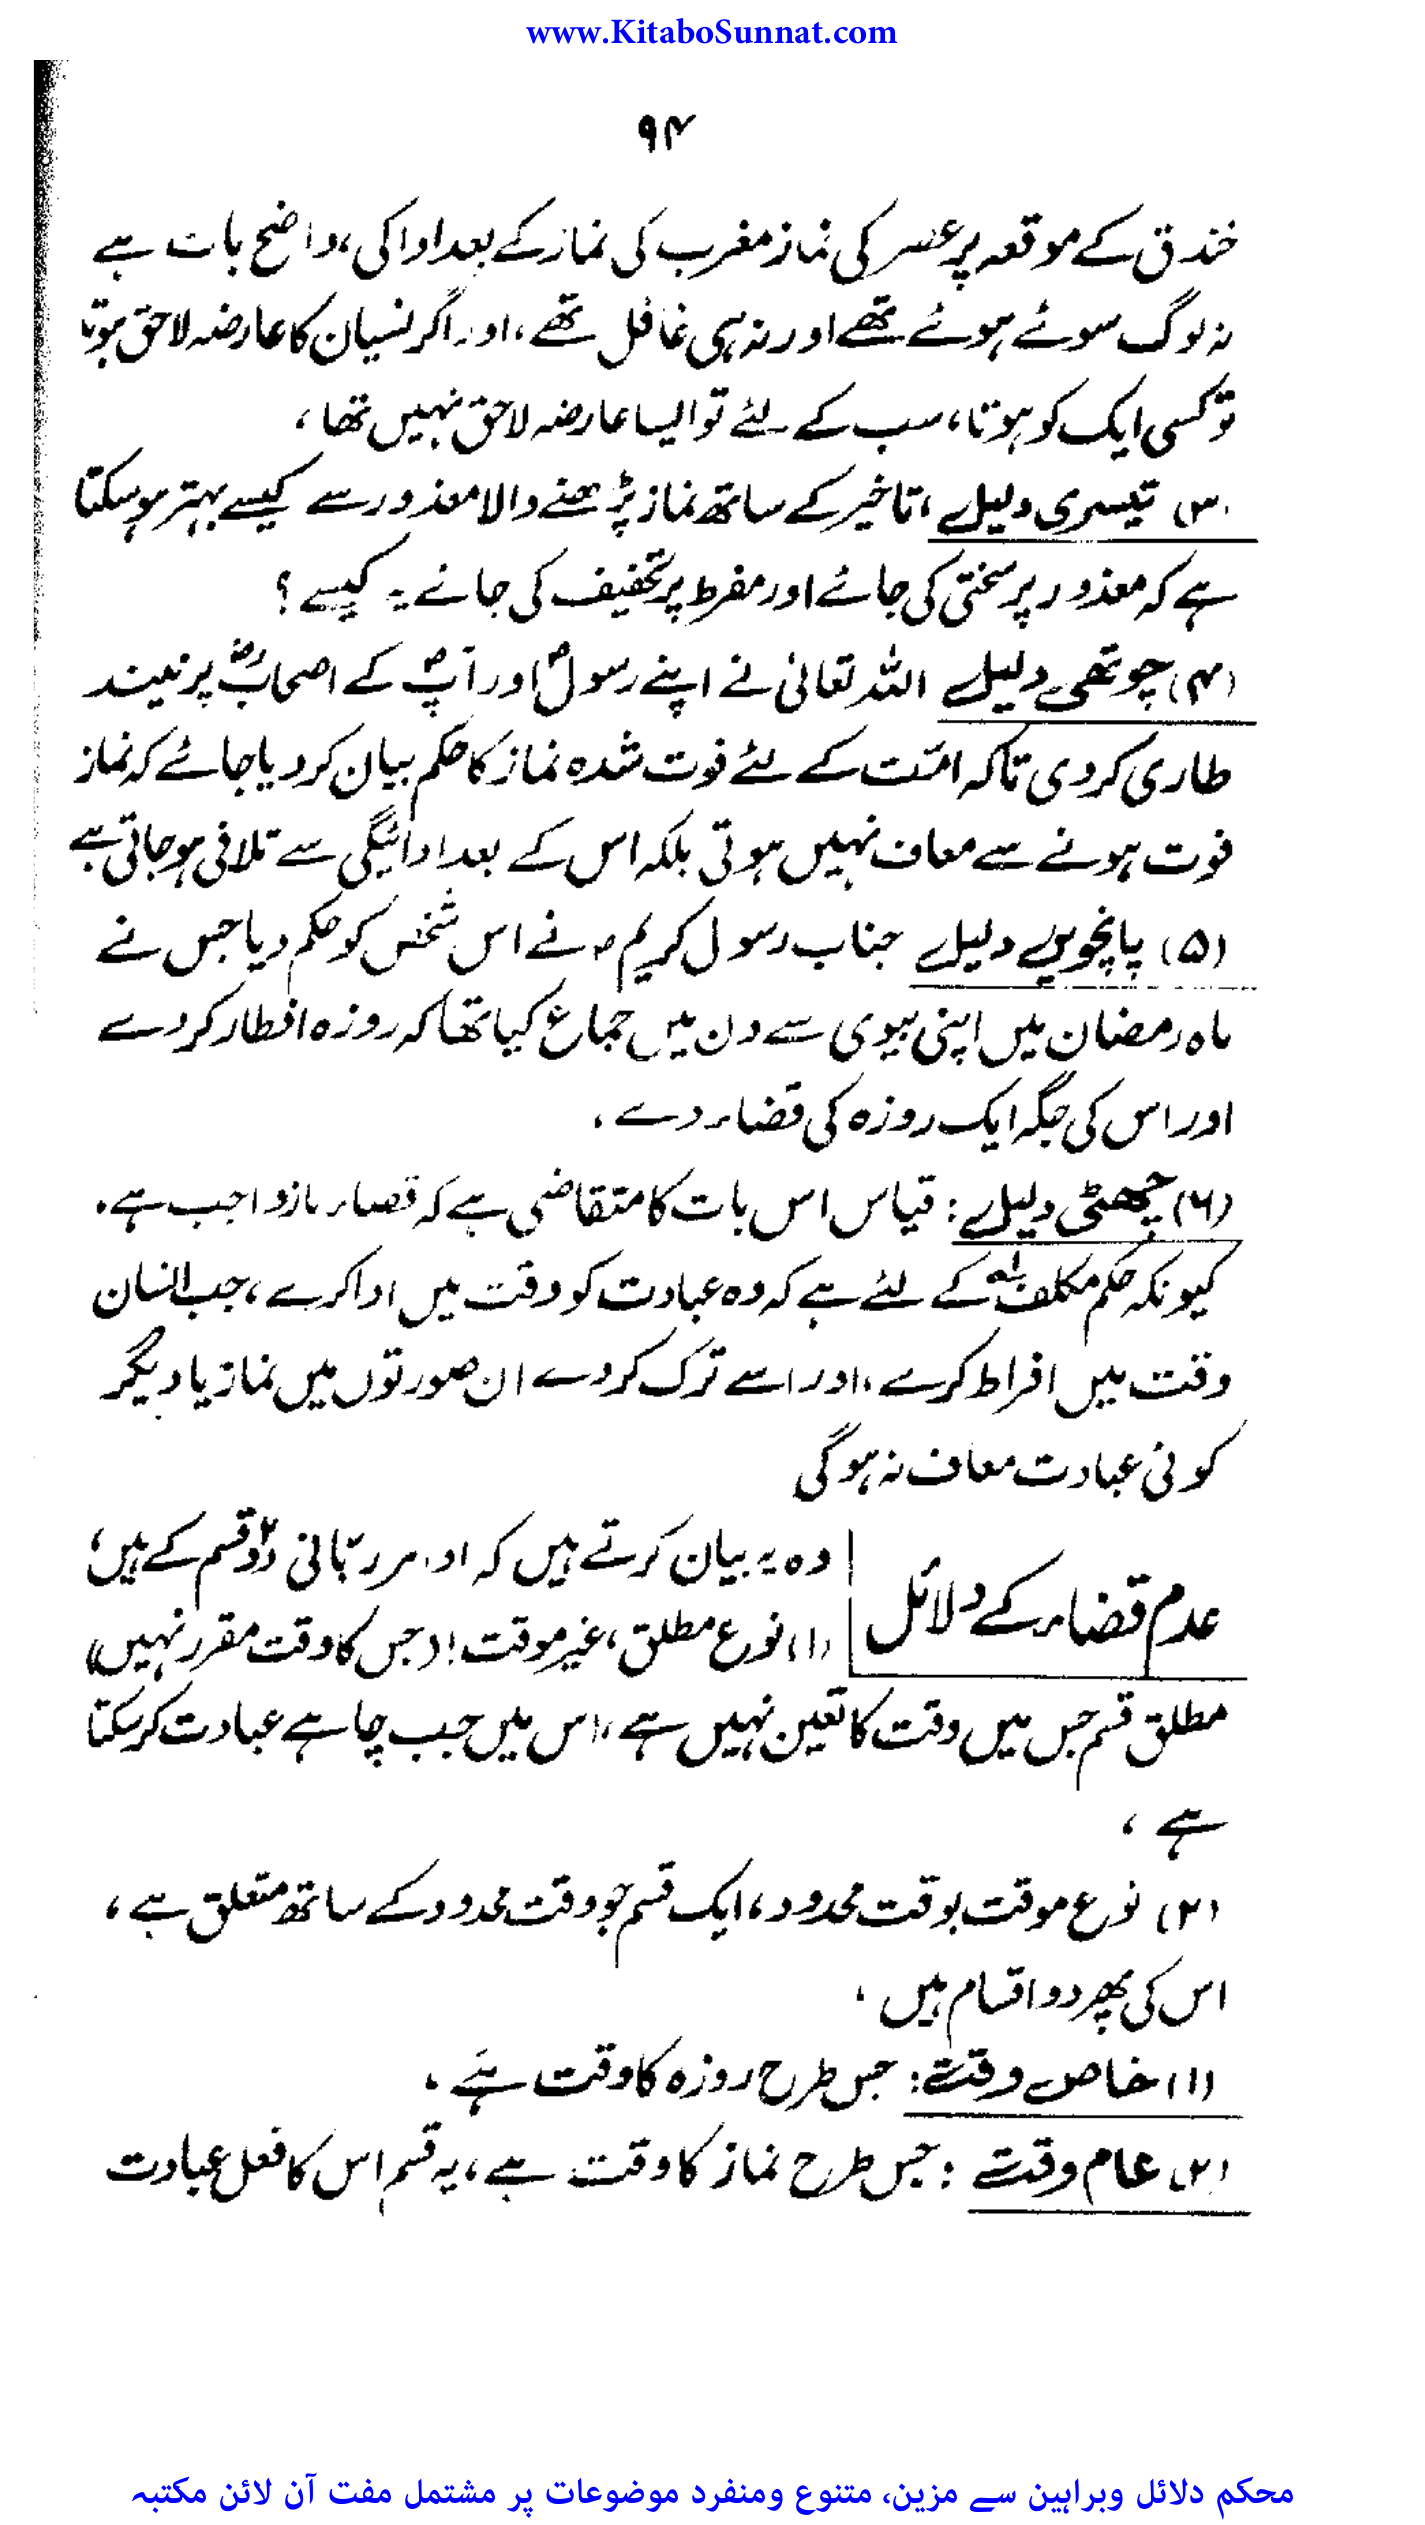 www.KitaboSunnat.com
۹۴
خندق کے موقعہ پر عصر کی نماز مغرب کی نماز کے بعد ادا کی، واضح بات ہے
نہ لوگ سوئے ہوئے تھے اور نہ ہی غافل تھے، اور اگر نسیان کا عارضہ لاحق ہوتا
تو کسی ایک کو ہوتا، سب کے لئے تو ایسا عارضہ لاحق نہیں تھا،
(۳) تیسری دلیل، تاخیر کے ساتھ نماز پڑھنے والا معذور سے کیسے بہتر ہو سکتا
ہے کہ معذور پر سختی کی جائے اور مفرط پر تخفیف کی جانے یہ کیسے؟
(۴) چوتھی دلیل اللہ تعالیٰ نے اپنے رسولؐ اور آپؐ کے اصحابؓ پر نیند
طاری کر دی تاکہ امّت کے لئے فوت شدہ نماز کا حکم بیان کر دیا جائے کہ نماز
فوت ہونے سے معاف نہیں ہوتی بلکہ اس کے بعد ادائیگی سے تلافی ہو جاتی ہے
(۵) پانچویں دلیل جناب رسول کریم ؐ نے اس شخص کو حکم دیا جس نے
ماہ رمضان میں اپنی بیوی سے دن میں جماع کیا تھا کہ روزہ افطار کر دے
اور اس کی جگہ ایک روزہ کی قضاء دے،
(۶) چھٹی دلیل: قیاس اس بات کا متقاضی ہے کہ قضاء نماز واجب ہے.
کیونکہ حکم مکلف کے لئے ہے کہ وہ عبادت کو وقت میں ادا کرے، جب انسان
وقت میں افراط کرے، اور اسے ترک کر دے ان صورتوں میں نماز یا دیگر
کوئی عبادت معاف نہ ہوگی
عدم قضاء کے دلائل
وہ یہ بیان کرتے ہیں کہ اوامر ربّانی دو۲ قسم کے ہیں،
(۱) نوع مطلق، غیر موقت: (جس کا وقت مقرر نہیں)
مطلق قسم جس میں وقت کا تعین نہیں ہے، اس میں جب چاہے عبادت کر سکتا
ہے،
(۲) نوع موقت بوقت محدود، ایک قسم جو وقت محدود کے ساتھ متعلق ہے،
اس کی پھر دو اقسام ہیں،
(۱) خاص وقت: جس طرح روزہ کا وقت ہے،
(۲) عام وقت: جس طرح نماز کا وقت ہے، یہ قسم اس کا فعل عبادت
محکم دلائل وبراہین سے مزین، متنوع ومنفرد موضوعات پر مشتمل مفت آن لائن مکتبہ